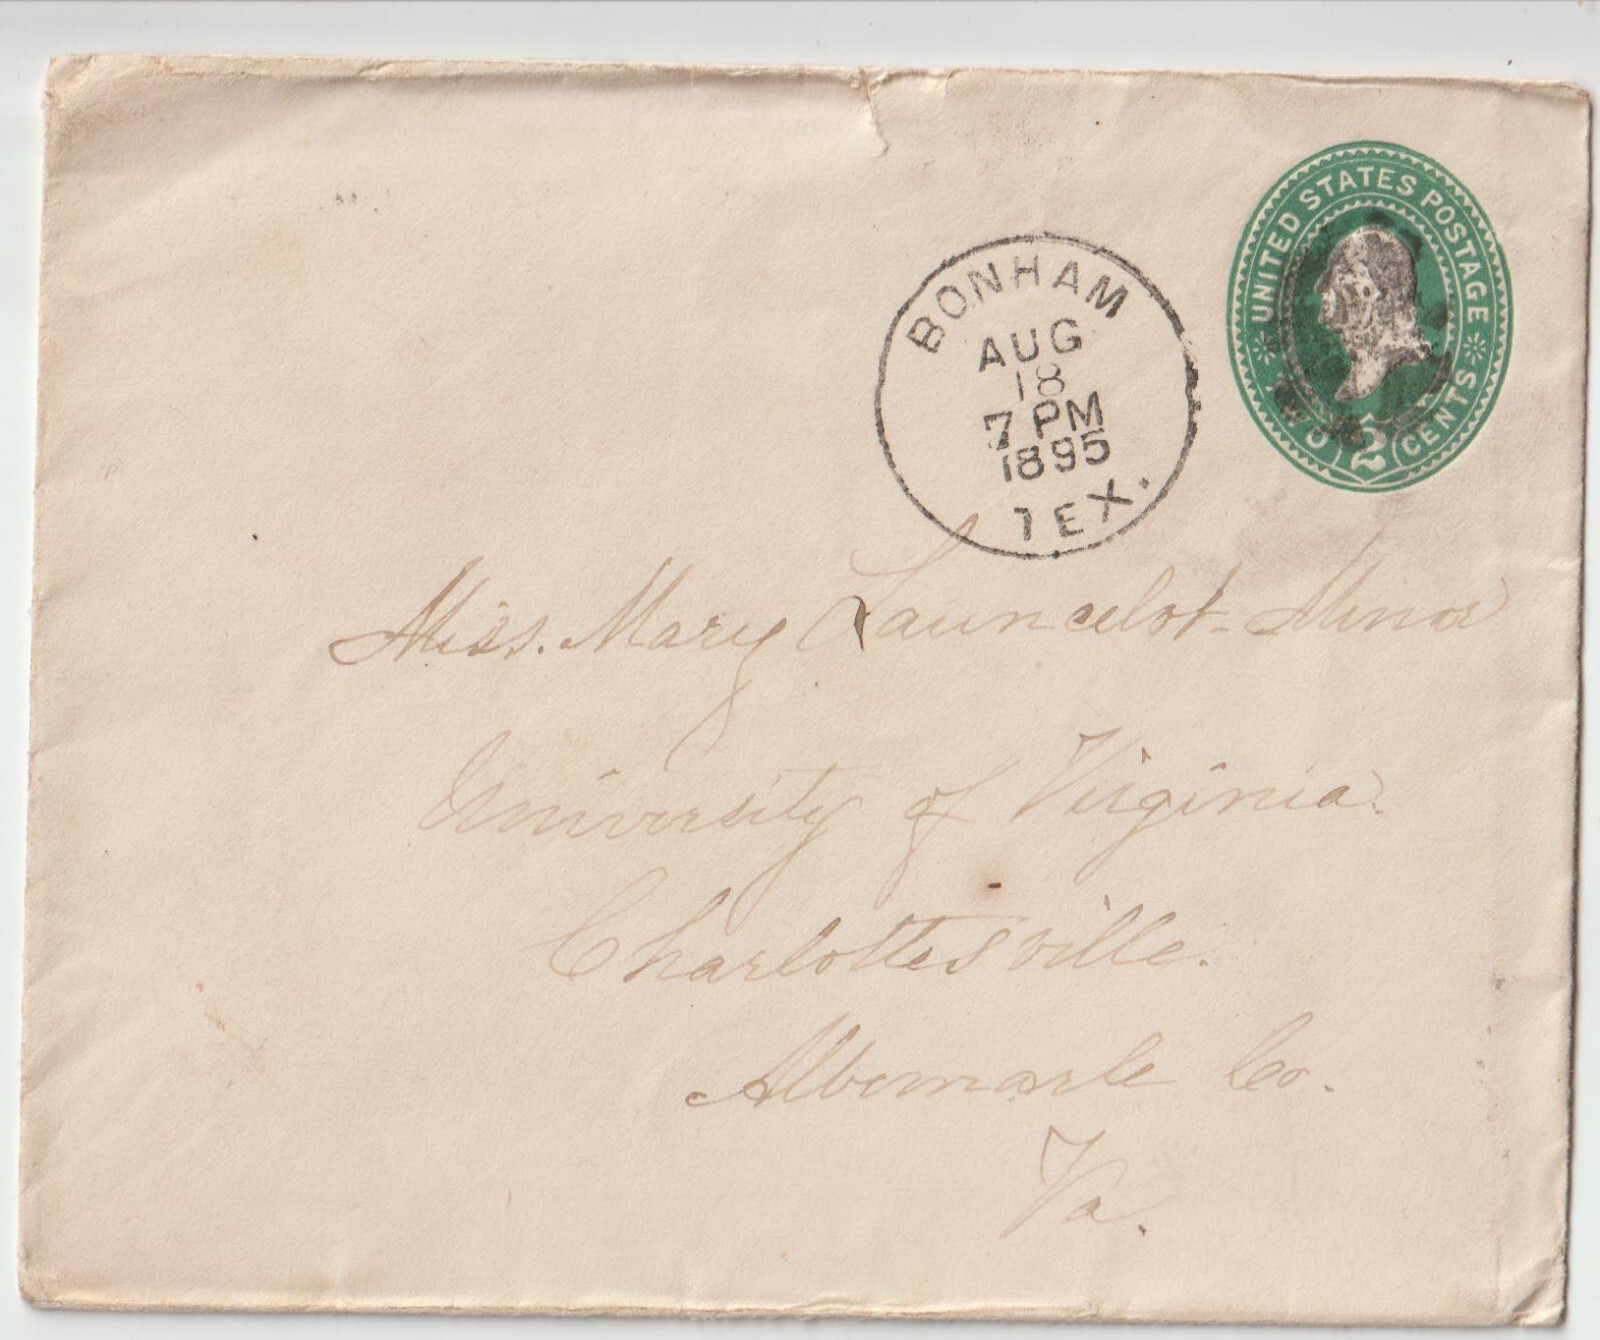 UNITED STATES POSTAGE
TWO 2 CENTS
BONHAM
AUG
18
7 PM
1895
TEX.
Miss. Mary Launcelot Minor
University of Virginia.
Charlottesville.
Albemarle Co.
Va.